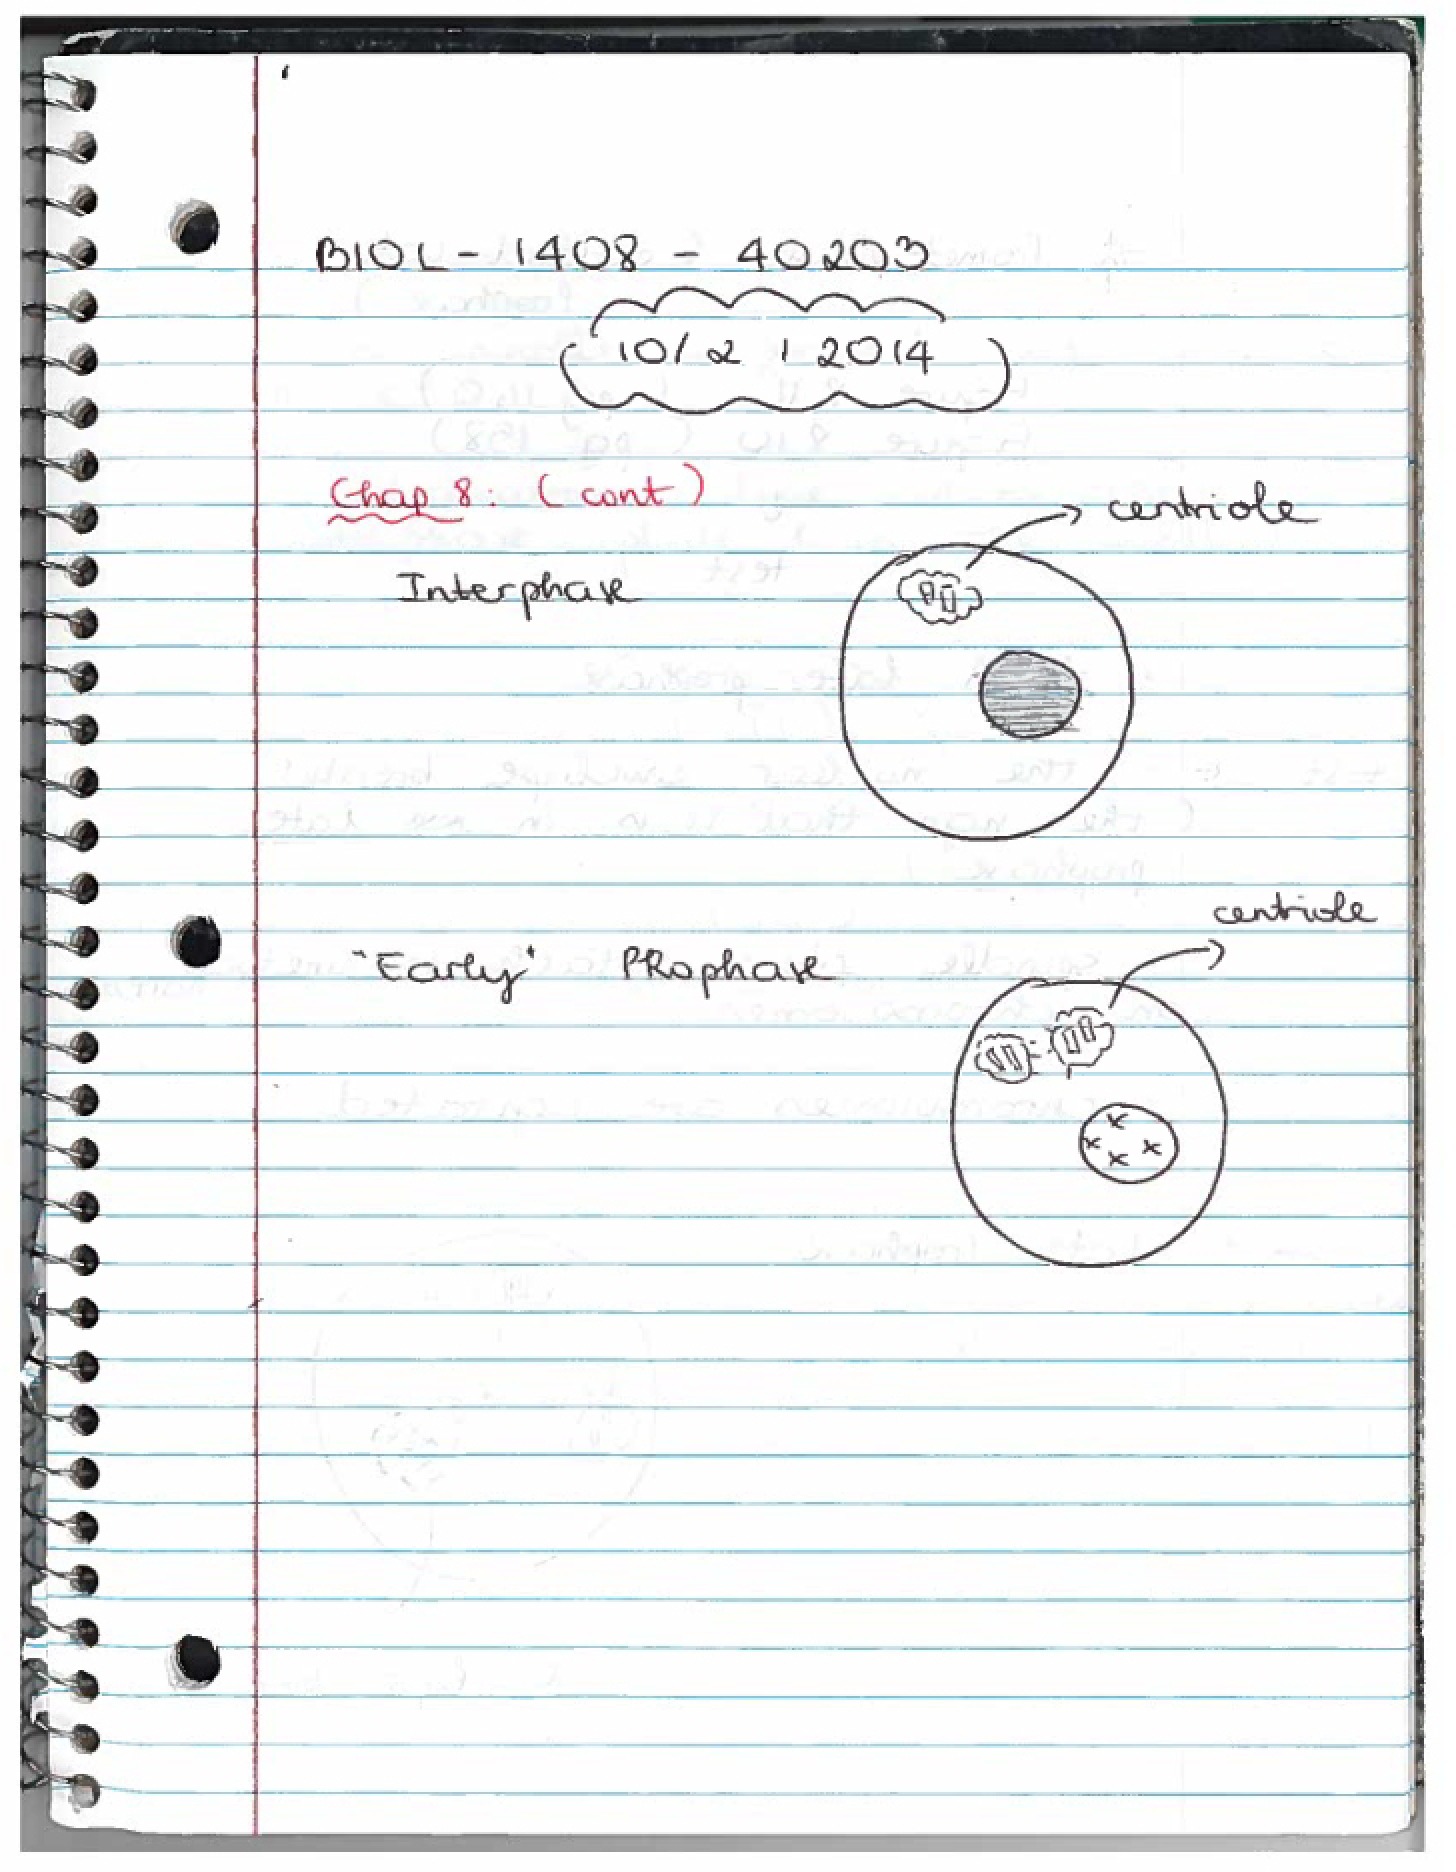 BIOL - 1408 - 40203
10/2/2014
Chap 8: (cont)
centriole
Interphase
centriole
"Early" PRophase